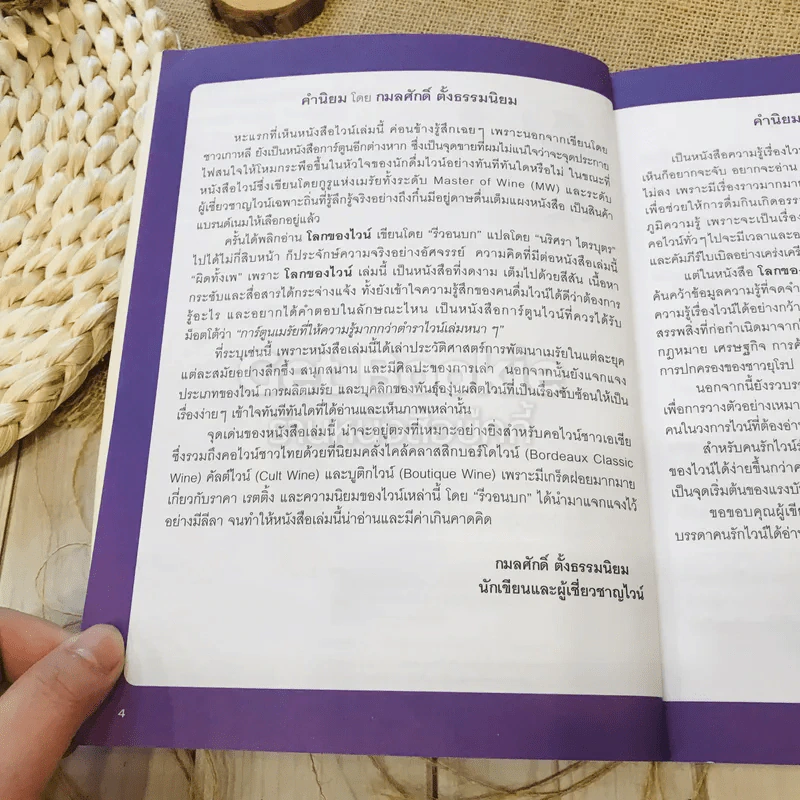 คำนิยม โดย กมลศักดิ์ ตั้งธรรมนิยม
หะแรกที่เห็นหนังสือไวน์เล่มนี้ ค่อนข้างรู้สึกเฉยๆ เพราะนอกจากเขียนโดย
ชาวเกาหลี ยังเป็นหนังสือการ์ตูนอีกต่างหาก ซึ่งเป็นจุดขายที่ผมไม่แน่ใจว่าจะจุดประกาย
ไฟสนใจให้โหมกระพือขึ้นในหัวใจของนักดื่มไวน์อย่างทันทีทันใดหรือไม่ ในขณะที่
หนังสือไวน์ซึ่งเขียนโดยกูรูแห่งเมรัยทั้งระดับ Master of Wine (MW) และระดับ
ผู้เชี่ยวชาญไวน์เฉพาะถิ่นที่รู้ลึกรู้จริงอย่างถึงกึ๋นมีอยู่ดาษดื่นเต็มแผงหนังสือ เป็นสินค้า
แบรนด์เนมให้เลือกอยู่แล้ว
ครั้นได้พลิกอ่าน โลกของไวน์ เขียนโดย “รีวอนบก” แปลโดย “นริศรา ไตรบุตร”
ไปได้ไม่กี่สิบหน้า ก็ประจักษ์ความจริงอย่างอัศจรรย์ ความคิดที่มีต่อหนังสือเล่มนี้
“ผิดทั้งเพ” เพราะ โลกของไวน์ เล่มนี้ เป็นหนังสือที่งดงาม เต็มไปด้วยสีสัน เนื้อหา
กระชับและสื่อสารได้กระจ่างแจ้ง ทั้งยังเข้าใจความรู้สึกของคนดื่มไวน์ได้ดีว่าต้องการ
รู้อะไร และอยากได้คำตอบในลักษณะไหน เป็นหนังสือการ์ตูนไวน์ที่ควรได้รับ
ม็อตโต้ว่า “การ์ตูนเมรัยที่ให้ความรู้มากกว่าตำราไวน์เล่มหนา ๆ”
ที่ระบุเช่นนี้ เพราะหนังสือเล่มนี้ได้เล่าประวัติศาสตร์การพัฒนาเมรัยในแต่ละยุค
แต่ละสมัยอย่างลึกซึ้ง สนุกสนาน และมีศิลปะของการเล่า นอกจากนั้นยังแจกแจง
ประเภทของไวน์ การผลิตเมรัย และบุคลิกของพันธุ์องุ่นผลิตไวน์ที่เป็นเรื่องซับซ้อนให้เป็น
เรื่องง่ายๆ เข้าใจทันทีทันใดที่ได้อ่านและเห็นภาพเหล่านั้น
จุดเด่นของหนังสือเล่มนี้ น่าจะอยู่ตรงที่เหมาะอย่างยิ่งสำหรับคอไวน์ชาวเอเชีย
ซึ่งรวมถึงคอไวน์ชาวไทยด้วยที่นิยมคลั่งไคล้คลาสสิกบอร์โดไวน์ (Bordeaux Classic
Wine) คัลต์ไวน์ (Cult Wine) และบูติกไวน์ (Boutique Wine) เพราะมีเกร็ดฝอยมากมาย
เกี่ยวกับราคา เรตติ้ง และความนิยมของไวน์เหล่านี้ โดย “รีวอนบก” ได้นำมาแจกแจงไว้
อย่างมีลีลา จนทำให้หนังสือเล่มนี้น่าอ่านและมีค่าเกินคาดคิด
กมลศักดิ์ ตั้งธรรมนิยม
นักเขียนและผู้เชี่ยวชาญไวน์
4
คำนิยม
เป็นหนังสือความรู้เรื่องไว
เห็นก็อยากจะจับ อยากจะอ่าน
ไม่ลง เพราะมีเรื่องราวมากมาย
เพื่อช่วยให้การดื่มกินเกิดอรร
ภูมิความรู้ เพราะจะเป็นเรื่อง
คอไวน์ทั่วๆ ไปจะมีเวลาและอ
และคัมภีร์ไบเบิลอย่างเคร่งเครี
แต่ในหนังสือ โลกขอ
ค้นคว้าข้อมูลความรู้ที่จดจำ
ความรู้เรื่องไวน์ได้อย่างกว้า
สรรพสิ่งที่ก่อกำเนิดมาจากไ
กฎหมาย เศรษฐกิจ การค้
การปกครองของชาวยุโรป
นอกจากนี้ยังรวบรว
เพื่อการวางตัวอย่างเหมา
คนในวงการไวน์ที่ต้องอ่าน
สำหรับคนรักไวน์รั
ของไวน์ได้ง่ายขึ้นกว่าค
เป็นจุดเริ่มต้นของแรงบั
ขอขอบคุณผู้เขีย
บรรดาคนรักไวน์ได้อ่าน